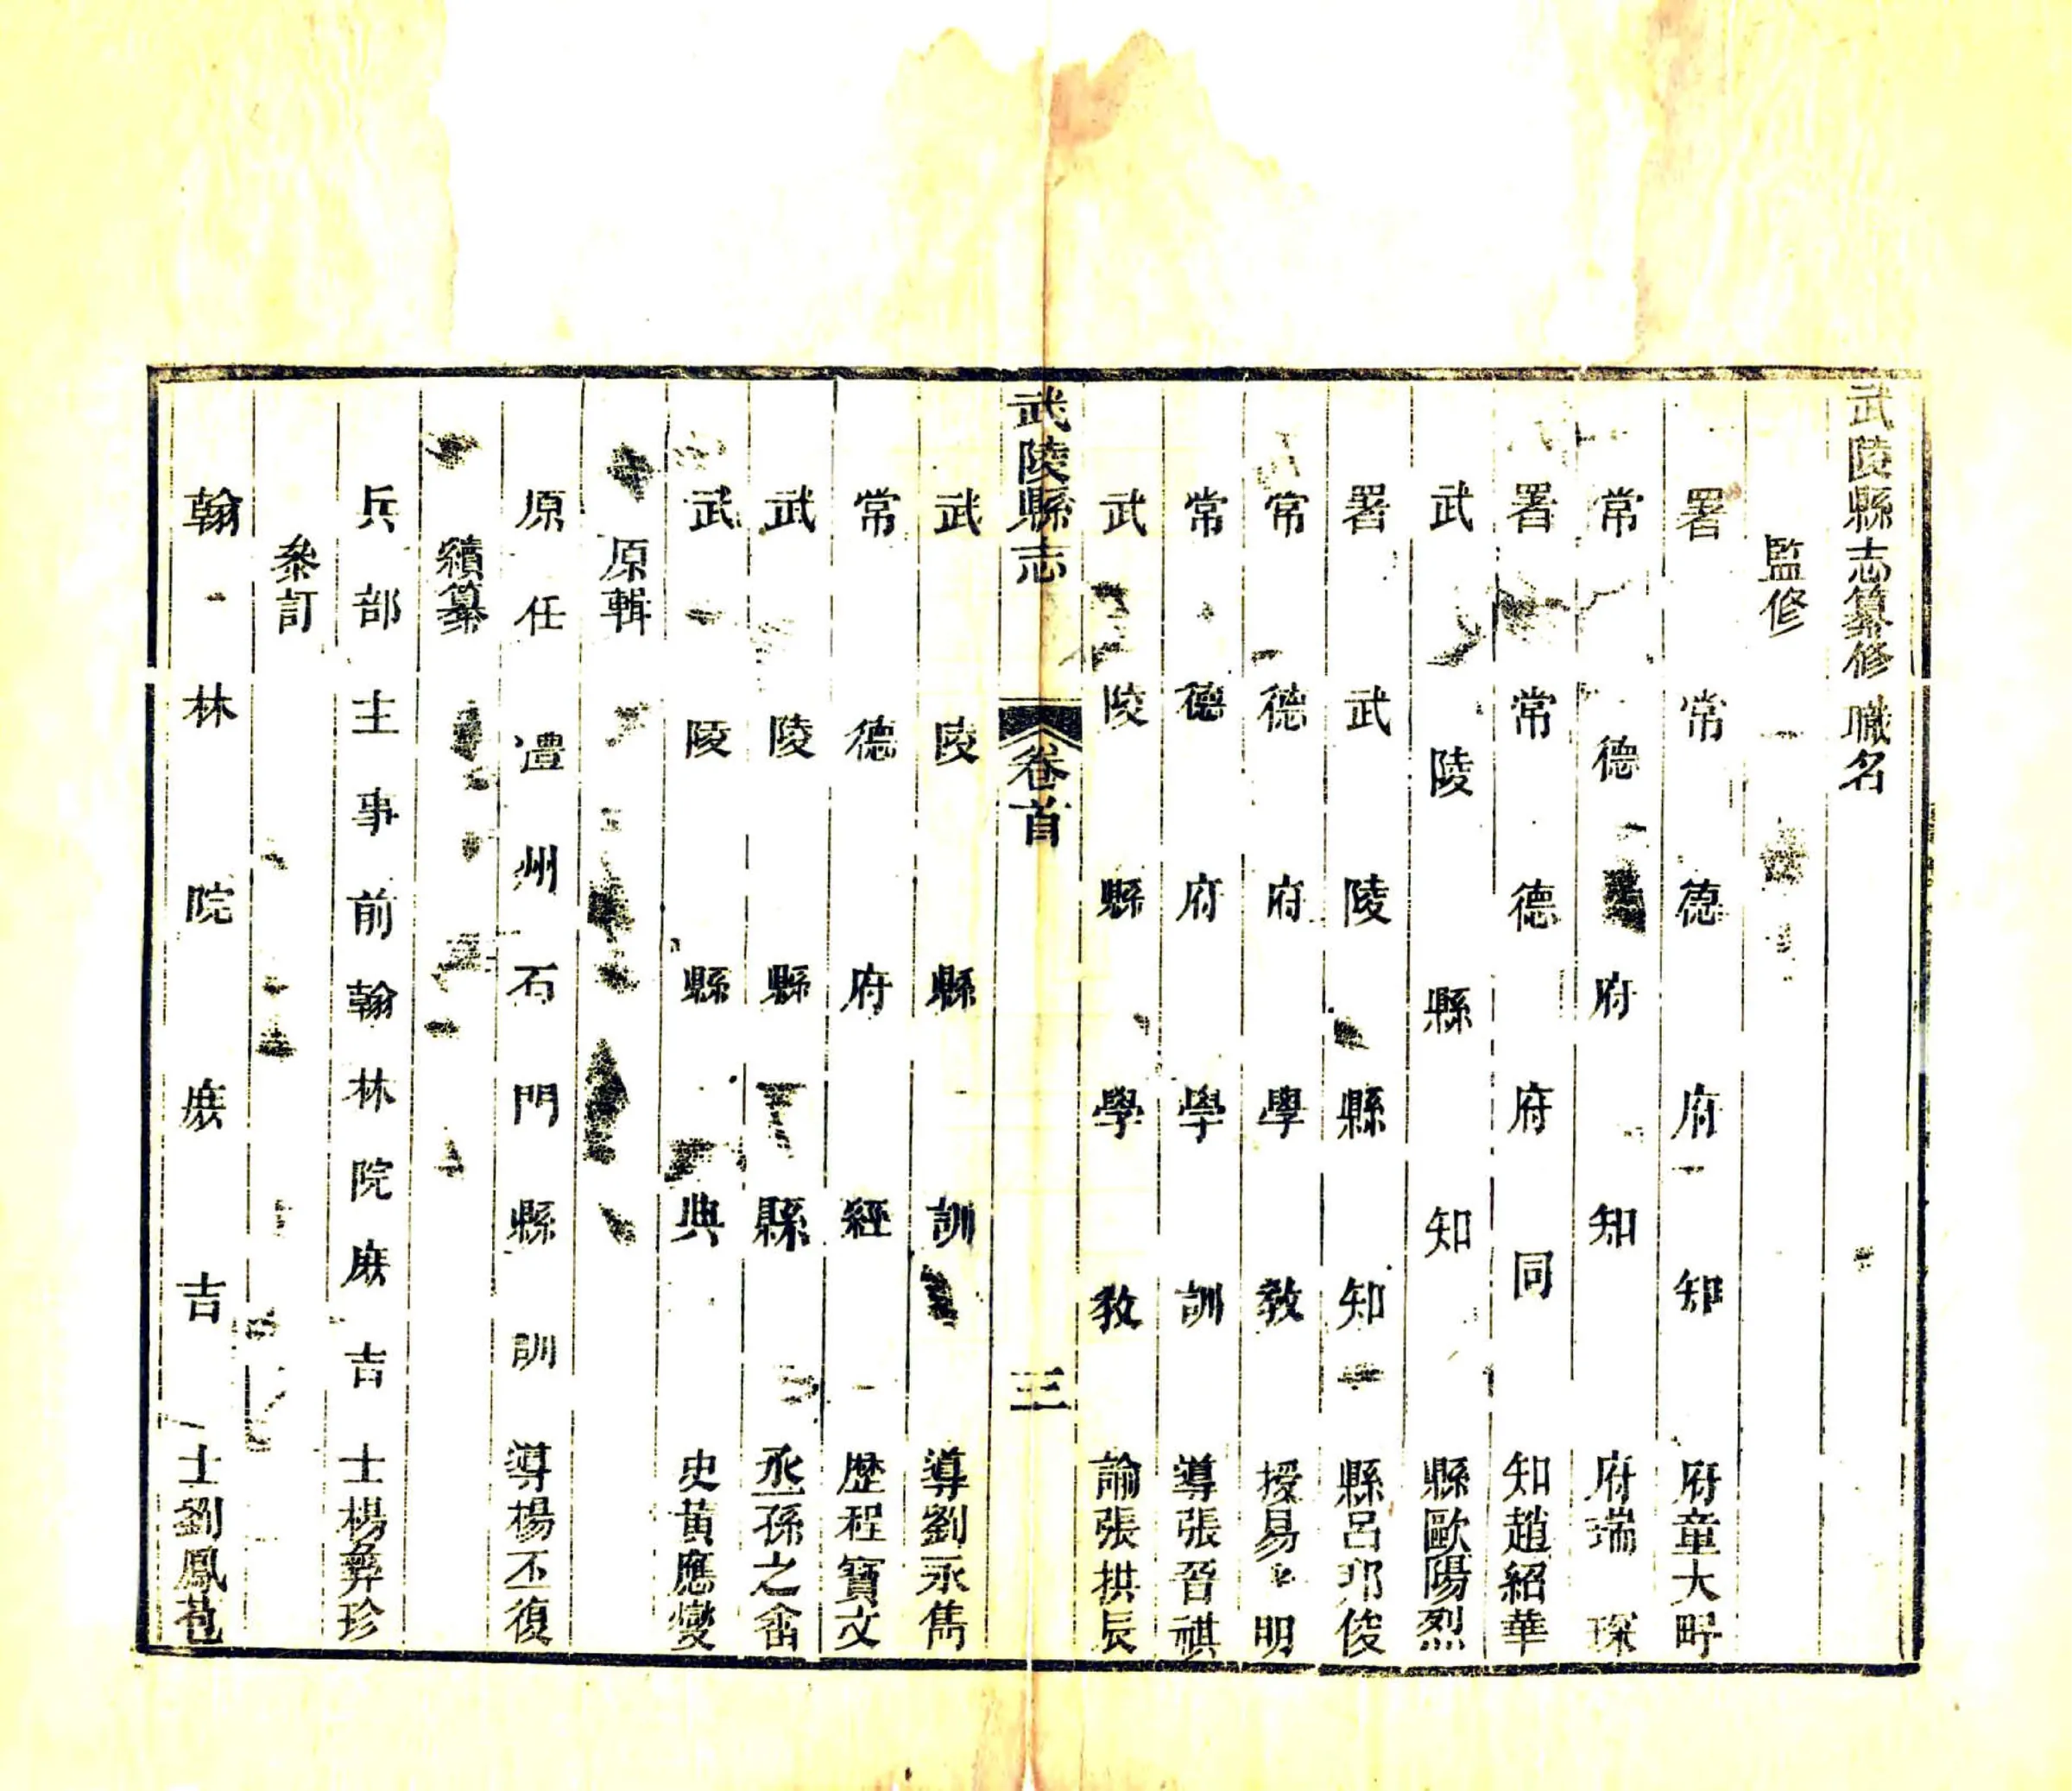 武陵縣志纂修職名
監修
署常德府知府童大畤
常德府知府瑞琛
署常德府同知趙紹華
武陵縣知縣歐陽烈
署武陵縣知縣呂邦俊
常德府學教授易明
常德府學訓導張晉祺
武陵縣學教諭張拱辰
武陵縣志
卷首
三
武陵縣訓導劉永雋
常德府經歷程寶文
武陵縣縣丞孫之畬
武陵縣典史黃應燮
原輯
原任澧州石門縣訓導楊丕復
續纂
兵部主事前翰林院庶吉士楊彝珍
叅訂
翰林院庶吉士劉鳳苞